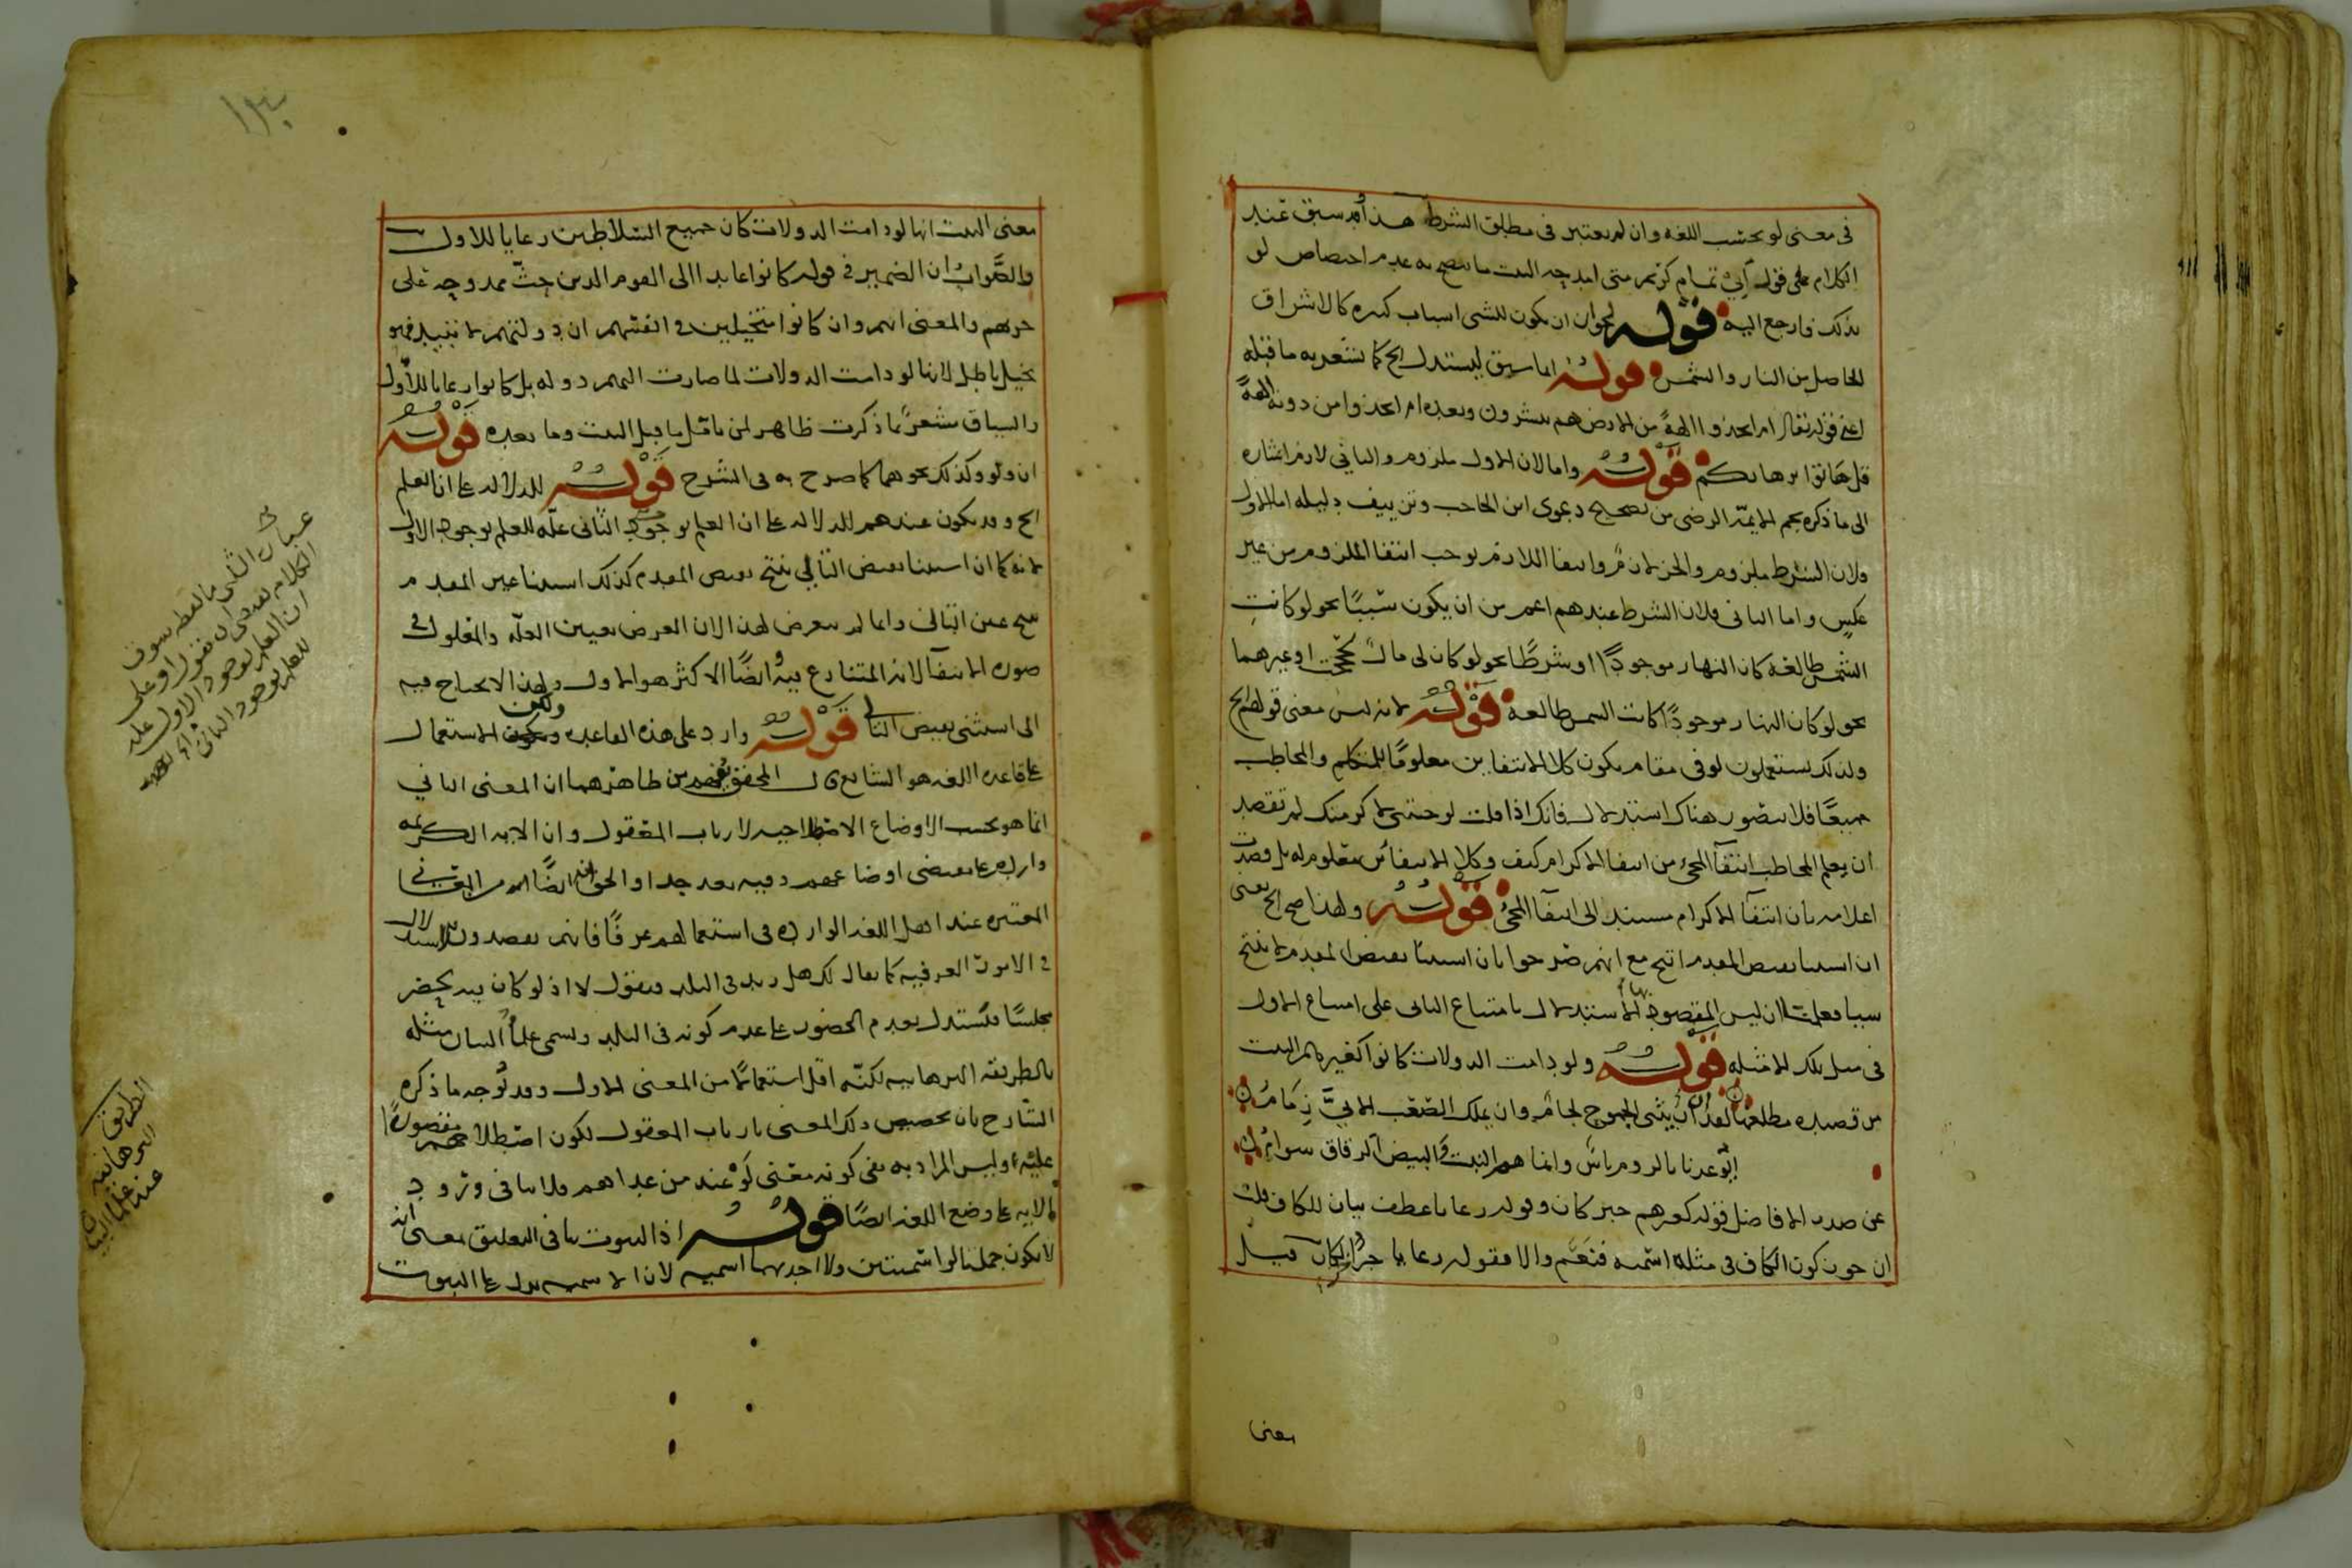 في معنى لو بحسب اللغه وان لم يعتبر في مطلق الشرط هذا وقد سبق عند
الكلام على قول ابي تمام كريم متى امدحه البيت ما يتضح به عدم اختصاص لو
بذلك فارجع اليه قوله لجواز ان يكون للشى اسباب كثيره كالاشراق
الحاصل من النار والشمس قوله انما سيق ليستدل الخ كما يشعر به ما قبله
اعنى قوله تعالى ام اتخذوا الهة من الارض هم ينشرون وبعده ام اتخذوا من دونه الهة
قل هاتوا برهانكم قوله واما لان الاول ملزوم والثاني لازم اشاره
الى ما ذكره نجم الايمة الرضى من تصحيح دعوى ابن الحاجب وتزييف دليله اما الاول
ولان الشرط ملزوم والجزا لازم وانتفا اللازم يوجب انتفا الملزوم من غير
عكس واما الثاني فلان الشرط عندهم اعم من ان يكون سببًا نحو لو كانت
الشمس طالعة كان النهار موجودًا او شرطًا نحو لو كان لى مال لحججت او غيرهما
نحو لو كان النهار موجودًا كانت الشمس طالعة قوله لانه ليس معنى قولهم الخ
ولذلك يستعملون لو فى مقام يكون كلا الانتفاين معلومًا للمتكلم والمخاطب
جميعًا فلا يتصور هناك استدلال فانك اذا قلت لو جئتني لاكرمتك لم تقصد
ان يعلم المخاطب انتفآ المجئ من انتفا الاكرام كيف وكلا الانتفائين معلوم له بل قصدت
اعلامه بان انتفآ الاكرام مستند الى انتفآ المجئ قوله ولهذا صح الخ يعنى
ان استثنا نقيض المقدم انتج مع انهم صرحوا بان استثنا نقيض المقدم لا ينتج
شيا فعلمت ان ليس المقصود بها الاستدلال بامتناع الثانى على امتناع الاول
فى مثل تلك الامثله قوله ولو دامت الدولات كانوا كغيرهم البيت
من قصيده مطلعها لعذرا ان يثنى الجموح لجام وان يملك الصعب الابي زمام
عدنا بالروم ناس وانما هم النبت والبيض الرقاق سوام
عن صدر الافاضل قوله كغيرهم خبر كان وقوله رعايا عطف بيان للكاف قلت
ان جوز كون الكاف فى مثله اسميه فنعم والا فقوله رعايا خبر كان قيل
معنى
معنى البيت انها لو دامت الدولات كان جميع السلاطين رعايا للاول
والصواب ان الضمير في قوله كانوا عايد الى القوم الذين حث ممدوحه على
حربهم والمعنى انهم وان كانوا متخيلين في انفسهم ان دولتهم لا تبيد فهو
تخيل باطل لانها لو دامت الدولات لما صارت اليهم دوله بل كانوا رعايا للاول
والسياق مشعر بما ذكرت ظاهر لمن تأمل ما قبل البيت وما بعده قوله
ان ولو وكذلك نحوهما كما صرح به فى الشرح قوله للدلاله على ان العلم
الخ وقد يكون عندهم للدلاله على ان العلم بوجود الثانى علة للعلم بوجود الاول
لانه كما ان استثنا نقيض التالي ينتج نقيض المقدم كذلك استثنا عين المقدم
ينتج عين التالى وانما لم يتعرض لهذا لان الغرض تعيين العله والمعلول في
صورة الانتفآ لانه المتنازع فيه وايضًا الاكثر هو الاول ولهذا لا يحتاج فيه
الى استثنى نقيض التالى قوله وارد على هذه القاعده ولكن الاستعمال
على قاعدة اللغه هو الشايع قال المحقق يفهم من ظاهرهما ان المعنى الثاني
انما هو بحسب الاوضاع الاصطلاحيه لارباب المعقول وان الايه الكريمه
وارده على مقتضى اوضاعهم وفيه بعد جدا والحق انه ايضًا من المعانى
المعتبره عند اهل اللغه الوارده فى استعمالهم عرفًا فانهم يقصدون الاستدلال
في الامور العرفيه كما يقال لك هل زيد فى البلد فتقول لا اذ لو كان فيه لحضر
مجلسنا فتستدل بعدم الحضور على عدم كونه فى البلد ويسمى علما البيان مثله
بالطريقه البرهانيه لكنه اقل استعمالا من المعنى الاول وقد توجه ما ذكره
الشارح بان تخصيص ذلك المعنى بارباب المعقول لكون اصطلاحهم مقصورًا
عليه وليس المراد به نفى كونه معنى لو عند من عداهم فلا ينافى ورود
الايه على وضع اللغه ايضًا قوله اذ الثبوت ينافى التعليق يعنى انه
لا يكون جملتا لو اسميتين ولا احديهما اسميه لان الاسميه تدل على الثبوت
عباره الشارح
الكلام يقتضى ان يقول او على
ان العلم بوجود الاول علة
للعلم بوجود الثاني
الطريق
البرهانيه
عند علما البيان